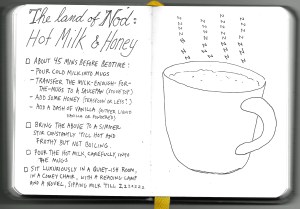 The land of Nod:
Hot Milk & Honey
□ About 45 mins before bedtime:
- Pour cold milk into mugs
- Transfer the milk-enough-for-
the-mugs to a saucepan (stovetop)
- Add some honey (teaspoon or less?)
- Add a dash of vanilla (either liquid
vanilla or powdered)
□ Bring the above to a simmer
stir constantly till hot and
frothy but not boiling.
□ Pour the hot milk, carefully, into
the mugs
□ Sit luxuriously in a quiet-ish room,
in a comfy chair, with a reading lamp
and a novel, sipping milk till zzzzzzz
z z z z
z z z z
z z z z
z z z z
z z z z
z z z z